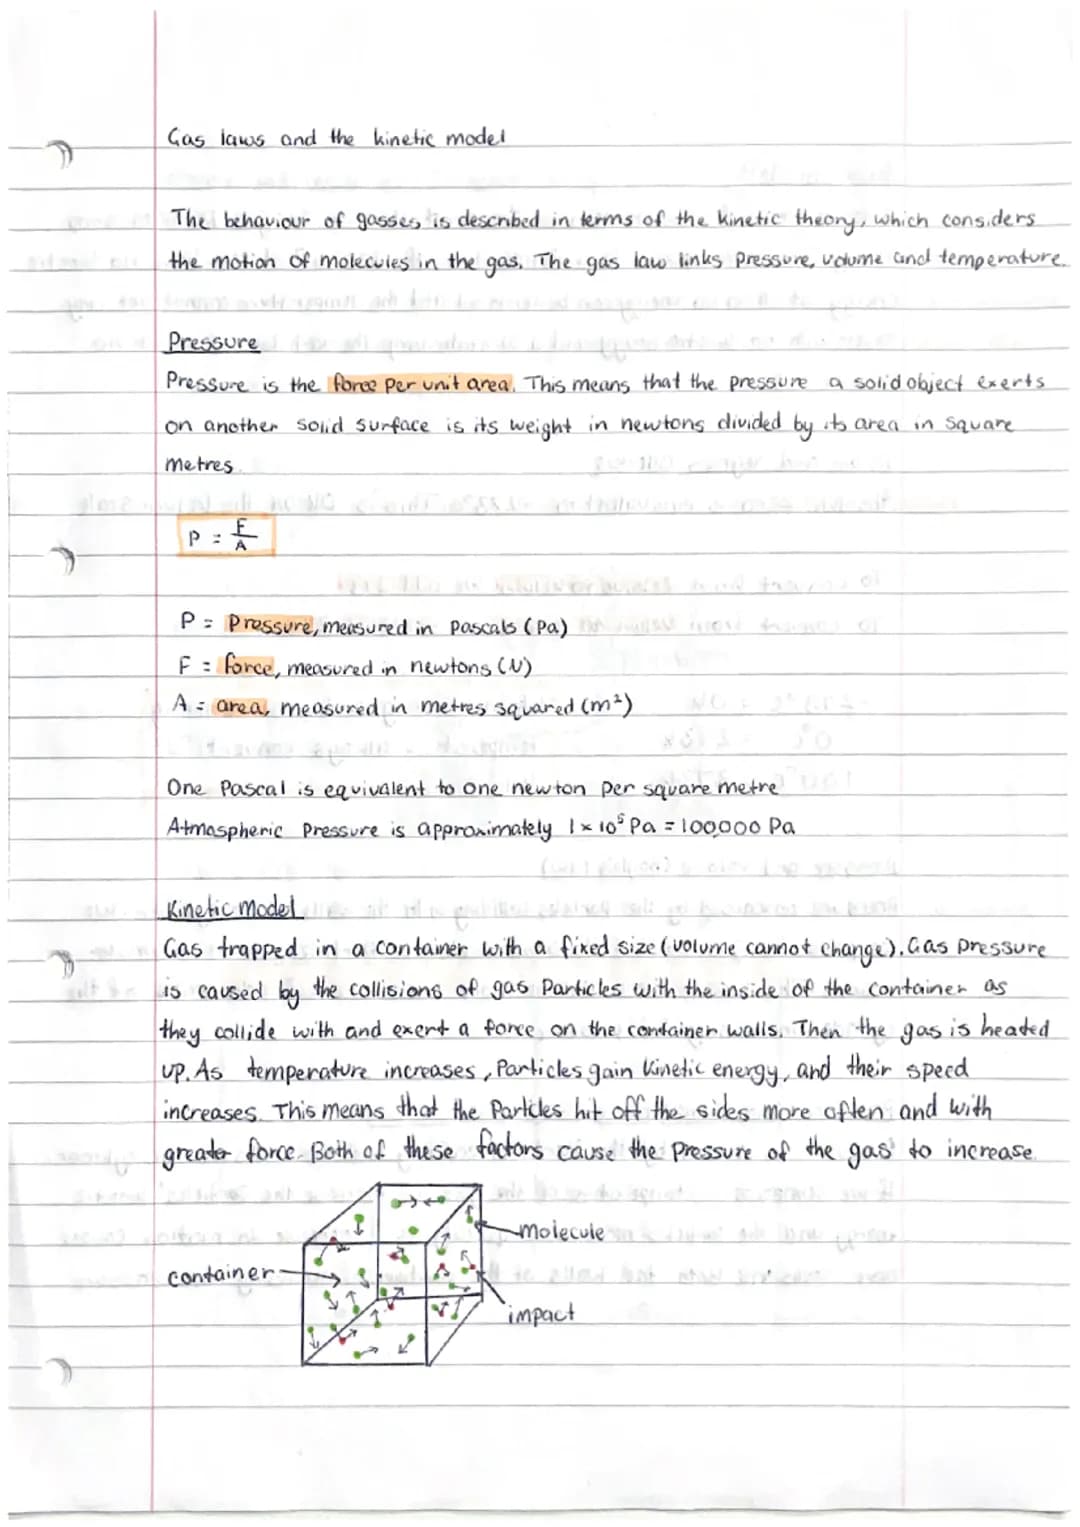 Gas laws and the kinetic model
The behaviour of gasses is described in terms of the kinetic theory, which considers
the motion of molecules in the gas. The gas law links pressure, volume and temperature.
Pressure
Pressure is the force per unit area. This means that the pressure a solid object exerts
on another solid surface is its weight in newtons divided by its area in square
metres.
P = F/A
P = Pressure, measured in Pascals (Pa)
F = force, measured in newtons (N)
A = area, measured in metres squared (m²)
One Pascal is equivalent to one newton per square metre
Atmospheric Pressure is approximately 1 × 10⁵ Pa = 100000 Pa
Kinetic model
Gas trapped in a container with a fixed size (volume cannot change). Gas pressure
is caused by the collisions of gas Particles with the inside of the container as
they collide with and exert a force on the container walls. Then the gas is heated
up. As temperature increases, Particles gain kinetic energy, and their speed
increases. This means that the Particles hit off the sides more often and with
greater force. Both of these factors cause the pressure of the gas to increase.
molecule
container
impact